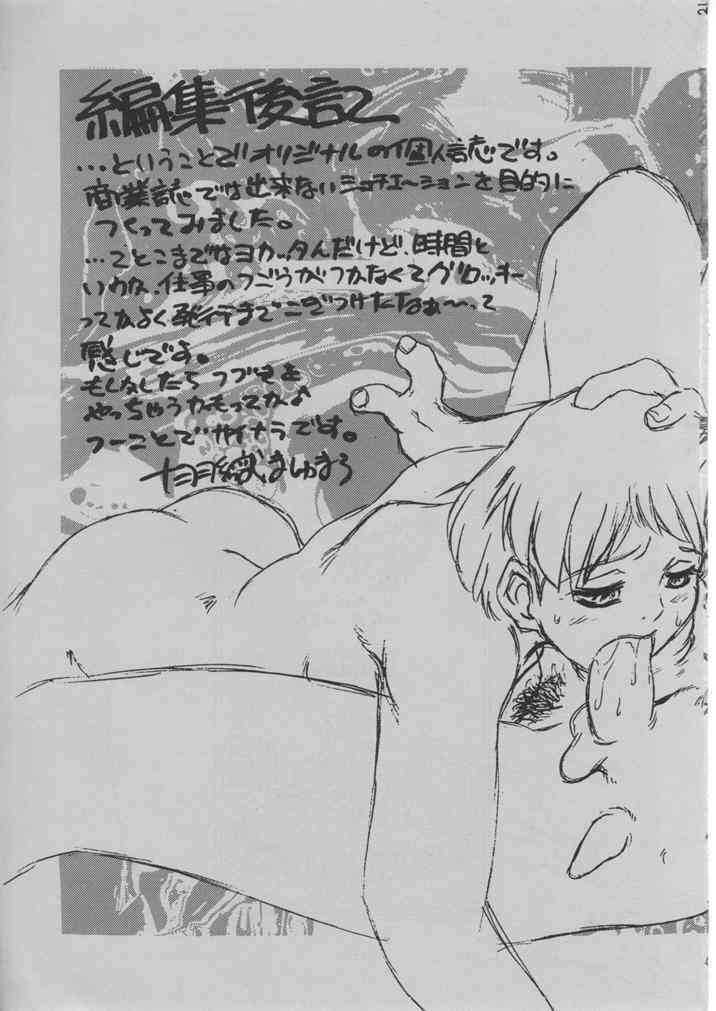 編集後記
…ということでオリジナルの個人誌です。
商業誌では出来ないシュチエーションを目的に
つくってみました。
…てとこまではヨカッタんだけど、時間と
いうか、仕事のつごうがつかなくてグロッキー
ってかよく発行までこぎつけたなぁ〜って
感じです。
もしかしたら つづきを
やっちゃうかもってか♂
つーことで サイナラです。
まゆまろ
21